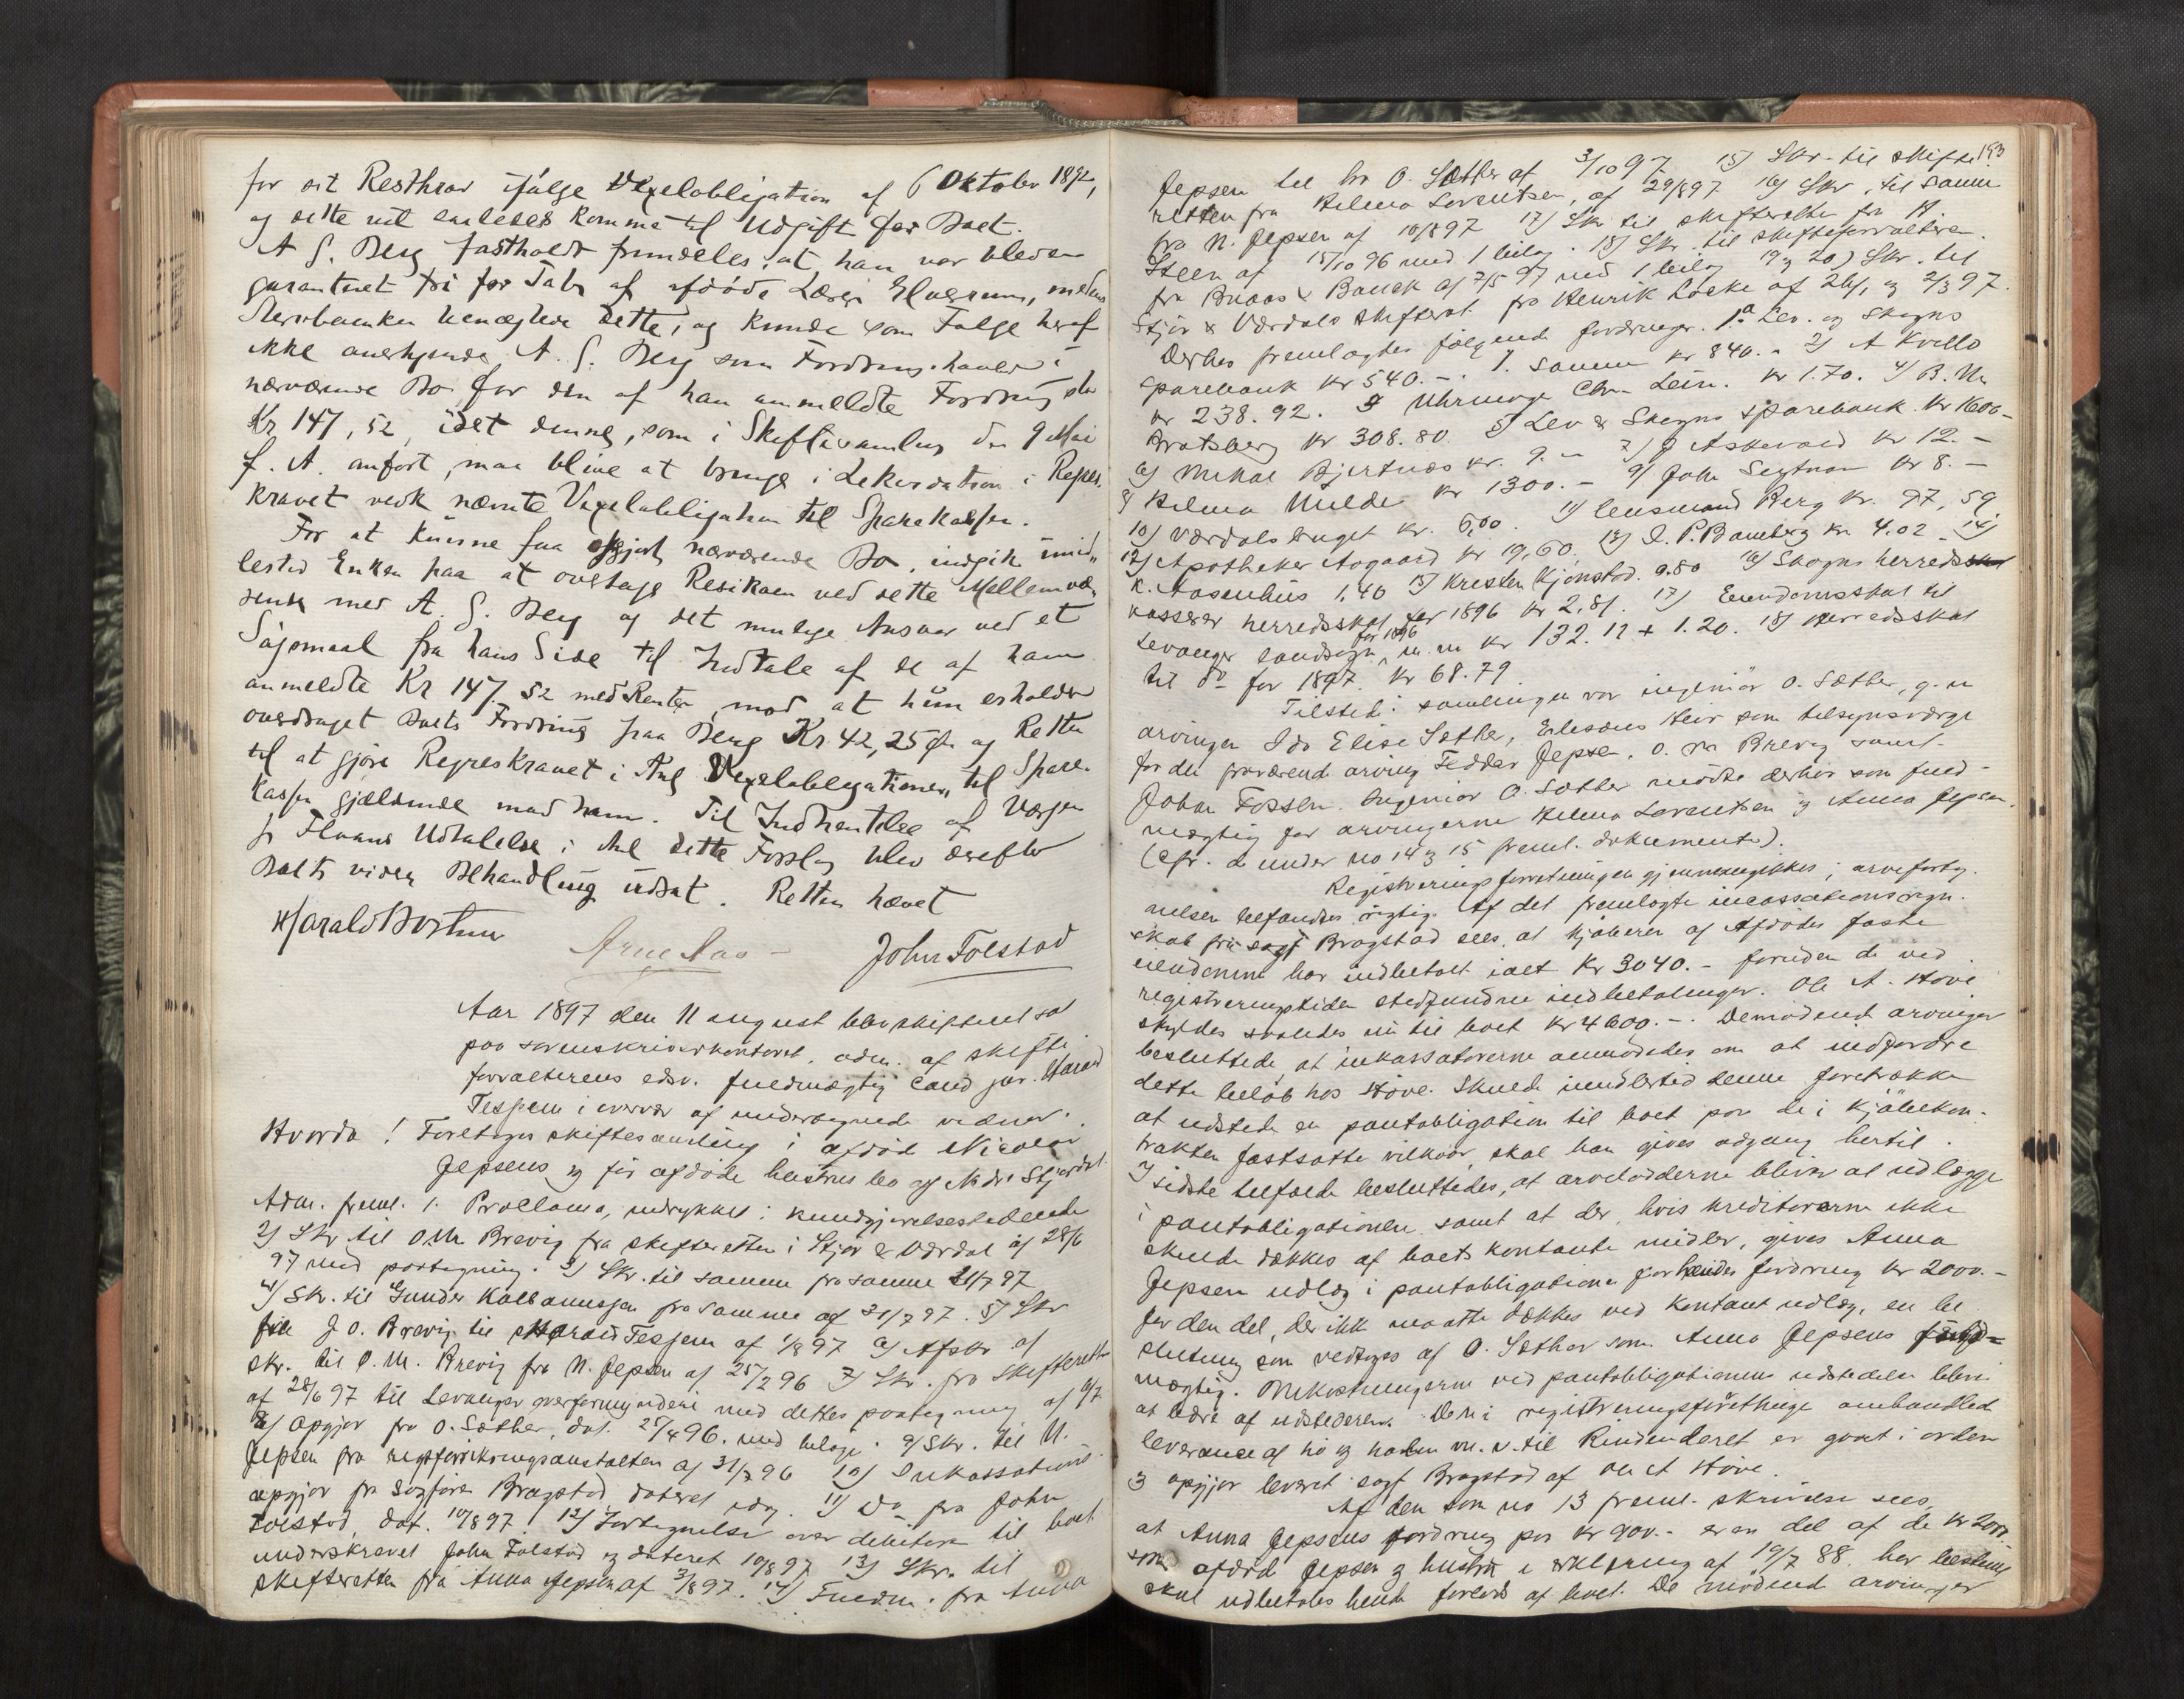 for sit Resthrav ifølge Vexelobligation af 6 Oktober 1892,
og dette vil saaledes komme til Udgift for Boet.
A G. Berg fastholdt fremdeles, at han var bleven
garanteret fri for Tab af afdøde Lærer Elverum, medens
Stervboenken benegtede dette, og kunde som Følge heraf
ikke anerkjende A. G. Berg som Fordringshaver i
nærværende Bo for den af han anmeldte Fordring stor
Kr 147,52, idet denne, som i Skiftesamling den 9 Mai
f. A. anført, maa blive at bringe i Likvidation i Regres
kravet vedk nævnte Vexelobligation til Sparekassen.
For at kunne faa opgjort nærværende Bo, indgik imid„
lertid Enken paa at overtage Risikoen ved dette Mellemvæ„
rende med A. G. Berg og det mulige Ansvar ved et
Søgsmaal fra hans Side til Indtale af de af ham
anmeldte Kr 147.52 med Renter, mod at hun erholder
overdraget Boets Fordring paa Berg Kr. 42,25 Øre og Retten
til at gjøre Regreskravet i Anl Vexelobligationen til Spare-
kassen gjældende mod ham. Til Indhentelse af Værgen
Udtalelse i Anl dette Forslag blev derefter
Boets videre Behandling udsat. Retten hævet
Harald Bostrøm
Arne Aas
John Tolstad
Aar 1897 den 11 august blev skifteret sat
paa sorenskriverkontoret, adm. af skifte
forvalterens edsv. fuldmægtig Cand jur. Harald
Tessem i overvær af undertegnede vidner.
Hvorda! Foretoges skiftesamling i afdøde Nicolai
Jepsens og før afdøde hustrus bo af Nedre Stjørdal
Adm. freml. 1. Proclama, indrykket i kundgjørelsestidende
2) Skr til O.M. Brevig fra skifteretten i Stjør & Værdal af 28/6
97 med paategning. 3) Skr. til samme fra samme 31/7 97
4) Skr. til Gunder Kolbanussen fra samme af 31/7 97. 5) Skr
fra J O. Brevig til Harald Tessem af 1/8 97 6) Afskr af
skr. til O. M. Brevig fra N. Jepsen af 25/2 96 7) Skr. fra Skifteretten
af 28/6 97 til Levanger overformynderi med dettes paategning af 9/7
8) Opgjør fra O. Sæther, dat. 25/4 96. med bilage. 9) Skr. til N.
Jepsen fra rigsforsikringsanstalten af 31/7 96 10) Inkassations
opgjør fra Sagfører Bragstad dateret idag. 11) Do fra John
Tolstad, dat. 10/8 97 12) Fortegnelse over debitorer til boet
underskrevet John Tolstad og dateret 10/8 97 13) Skr. til
skifteretten fra Anna Jepsen af 3/8 97. 14) Fuldm. fra Anna
193
Jepsen til hr O. Sæther af 3/10 97 15) Skr. til skifte
retten fra Helma Lorentsen, af 29/8 97 16) Skr. til samme
fra N. Jepsen af 10/8 97 17) Skr til skifteretten fra H
Steen af 15/10 96 med 1 bilag. 18) Skr. til skifteforvalteren
fra Buaas & Bauck af 7/5 97 med 1 bilag 19 og 20) Skr. til
Stjør & Værdals skifteret fra Henrik Locke af 26/1 og 2/3 97.
Derhos fremlagdes følgende fordringer. 1a Lev. og Skogns
sparebank kr 540.- . 1. samme kr 840.- 2) A Kvello
kr 238.92. 3 Uhrmager Chr. Lein. kr 1.70. 4) B. M.
Bratsberg kr 308.80. 5) Lev & Skogns sparebank. kr 1600-
6) Mikal Bjertnæs kr. 9.- 7) J Askevold kr 12.-
8 Helma Hulde kr 1300.- 9) John Segtnan kr 8.-
10) Værdalsbruget kr. 6,00. 11) lensmand Berg kr. 97,59.
12) Apotheker Aagaard kr 19,60. 13) I. P. Bomberg kr 4.02 14)
K. Aasenhus 1.40 15) Kristen Kjønstad. 9.80 16) Skogns herreds
kasserer herredsskat for 1896 kr 2,81. 17) Eiendomsskat til
Levanger landsogn for 1896 m.m kr 132.12 + 1.20. 18) Herredsskat
til do for 1897 kr 68.79.
Tilstede i samlingen var ingeniør O. Sæther, g.m
arvingen Ida Elise Sæther, Erlesøns Heir som tilsynsværge
for den fraværende arving Feddar Jepsen, O. M Brevig samt
Johan Fossen. Ingeniør O. Sæther mødte derhos som fuld-
mægtig for arvingerne Helma Lorentsen og Anna Jepsen.
(Cfr. de under no 14 og 15 freml. dokumenter).
Registreringsforretningen gjennemgikkes; arvefortg-
nelsen befandtes rigtig. Af det fremlagte incassationsregn-
skab fra sagf Bragstad sees, at kjøberen af Afdødes faste
eiendomme har indbetalt ialt Kr 3040.- foruden de ved
registreringstiden stedfundne indbetalinger. Ole A. Hove
skyldes saaledes nu til boet kr 4600.-. De mødende arvinger
besluttede, at inkassatorerne anmodedes om at indfordre
dette beløb hos Hove. Skulde imidlertid denne foretrække
at udstede en pantobligation til boet paa de i kjøbekon-
trakten fastsatte vilkaar, skal han gives adgang hertil.
I sidste tilfælde besluttedes, at arvelodderne bliver at udlægge
i pantobligationen samt at der, hvis kreditorerne ikke
skulde dækkes af boets kontante midler, gives Anna
Jepsen udlæg i pantobligationen for hendes fordring kr 2000.-
for den del, der ikke maatte dækkes ved kontant udlæg, en be
slutning som vedtoges af O. Sæther som Anna Jepsens fuld-
mægtig. Omkostningerne ved pantobligationens udstedelse bliver
at bære af udstederen. Den i registreringsforretningen omhandlede
leverance af hø og halm m.v. til Rinderderet er gaat i orden
3 opgjør leveret sagf Bragstad af Ole A Hove.
Af den som no 13 freml. skrivelse sees,
at Anna Jepsens fordring paa kr 900.- er en del af de kr 2000
som afdød Jepsen og hustru i erklæring af 19/7 88. har bestemt
skal udbetales hende forlods af boet. De mødende arvinger